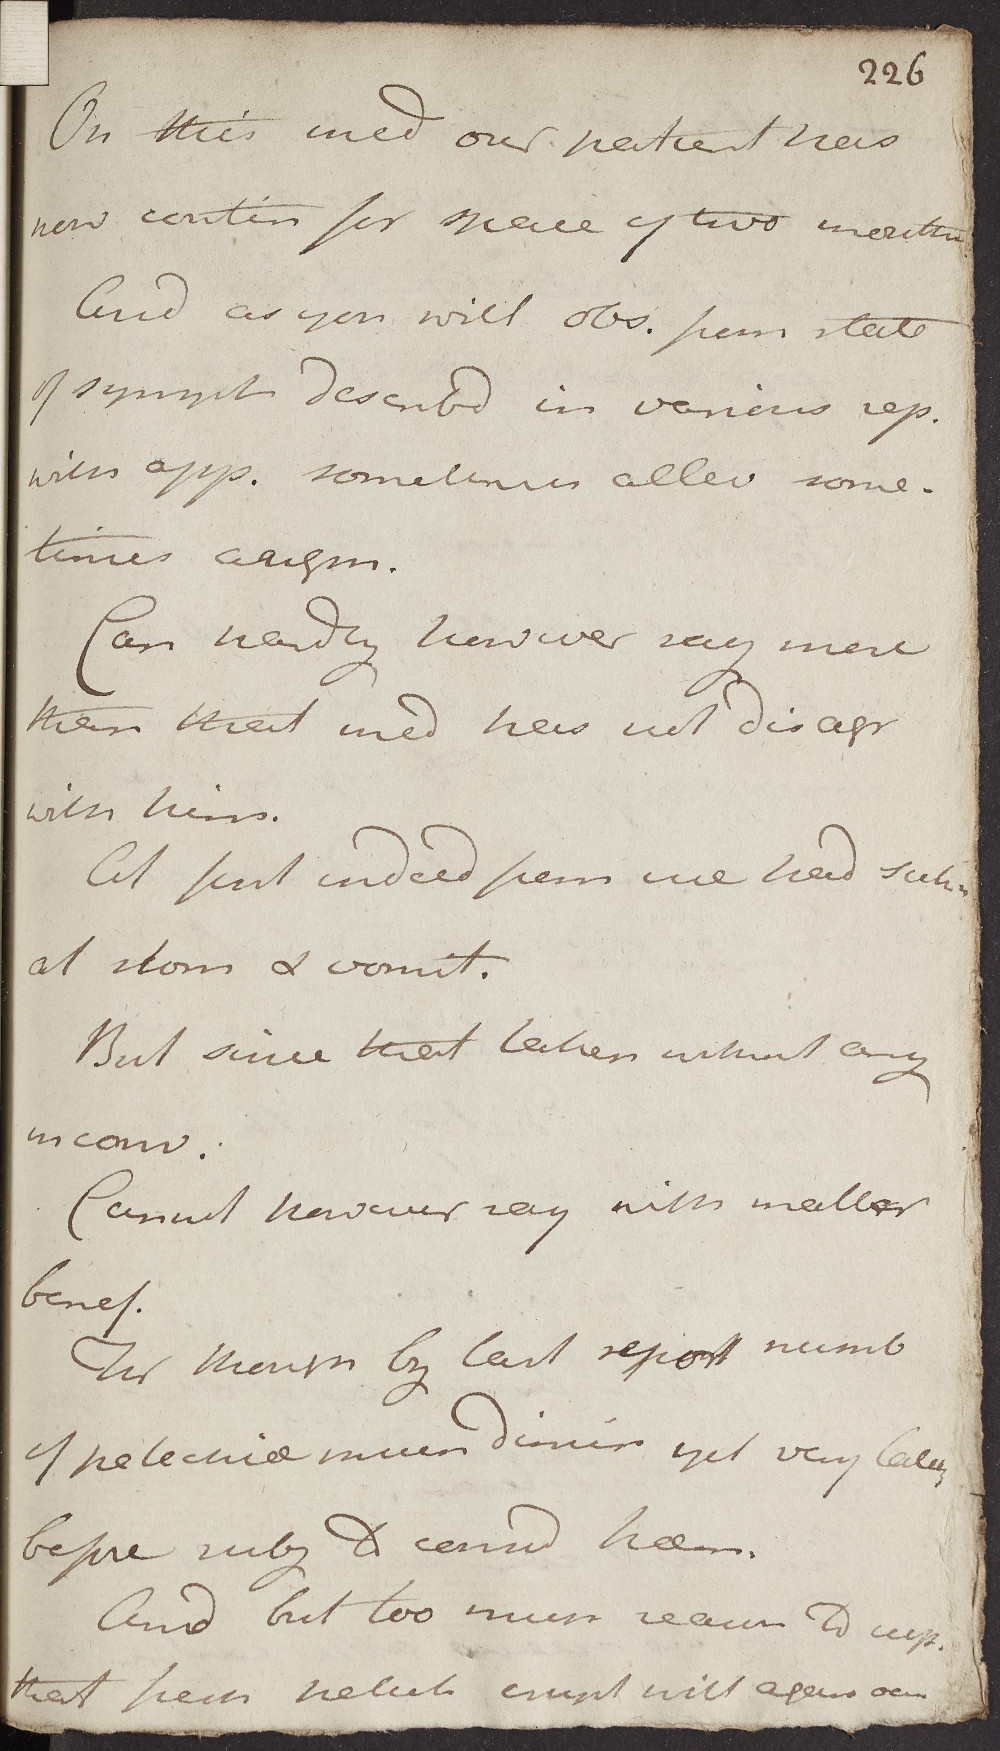 226
On this med our patient has
now contin for space of two months
And as you will obs. from state
of sympt describd in various rep.
with app. sometimes allev some-
times augm.
Can hardly however say more
than that med has not disagr
with him.
At first indeed from use had sickn
at stom & vomit.
But since that taken without any
inconv.
Cannot however say with matter
benef.
For though by last report numb
of petechiæ much dimin yet very lately
before subj to considd hæm.
And but too much reason to susp.
that from petech erupt will again occur